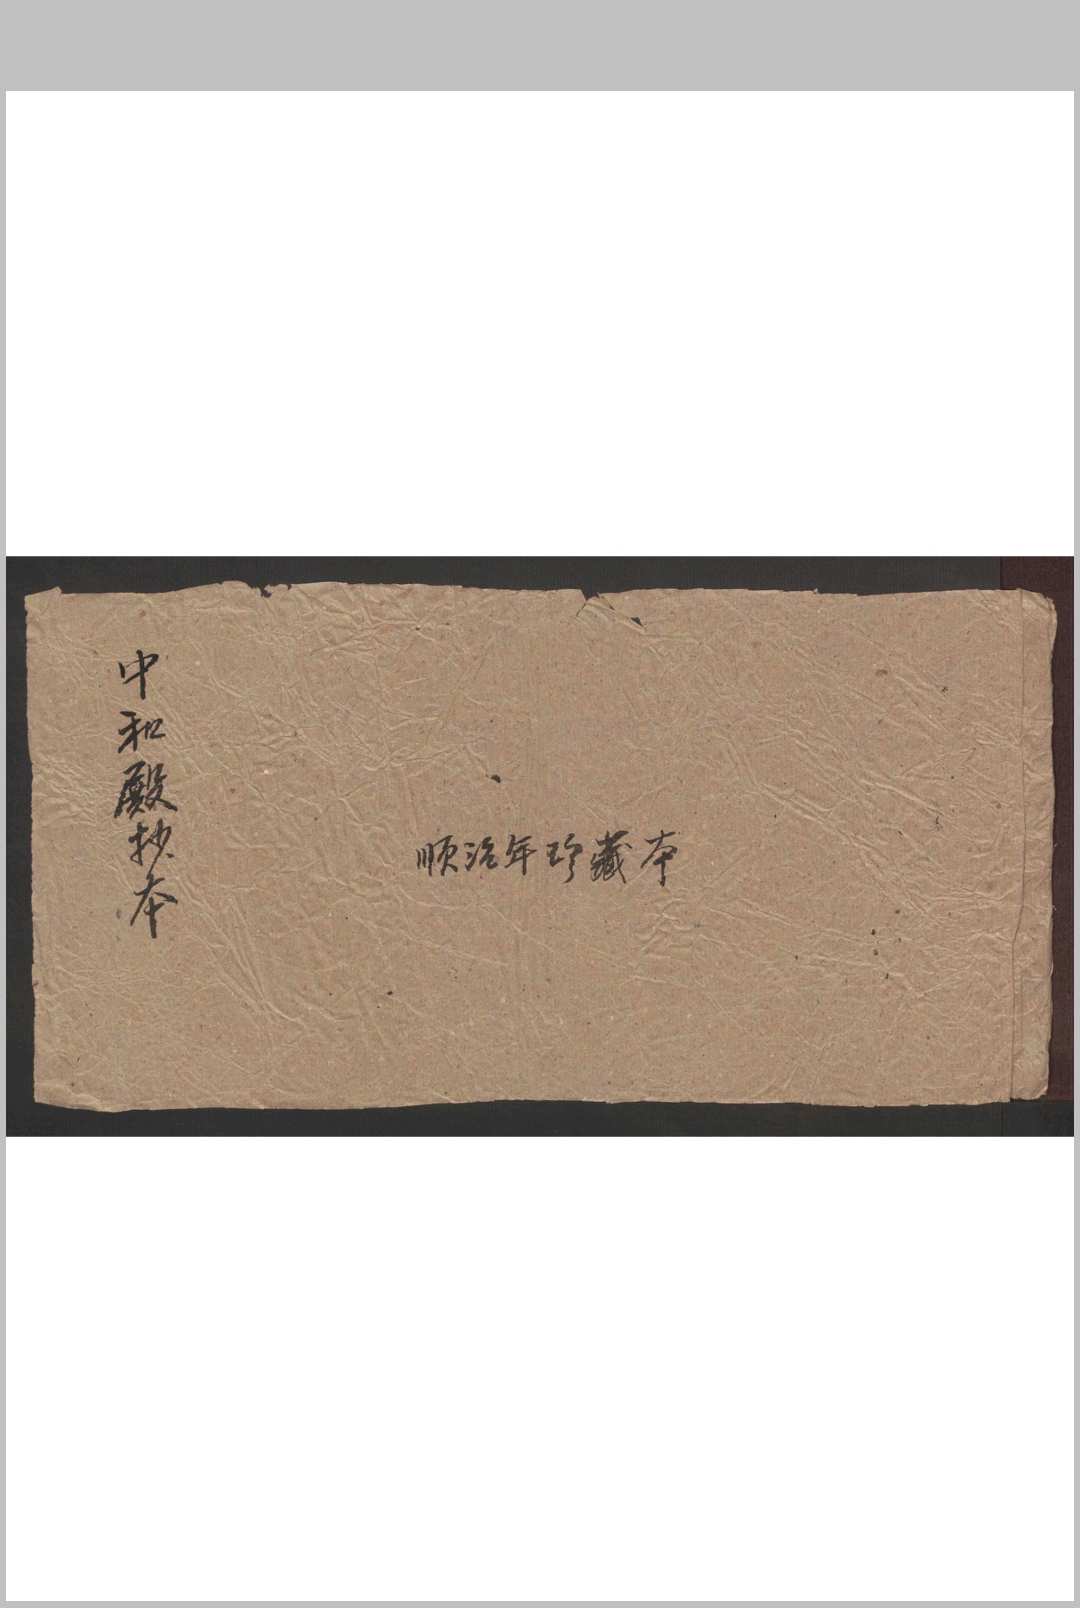 中和殿抄本
顺治年珍藏本